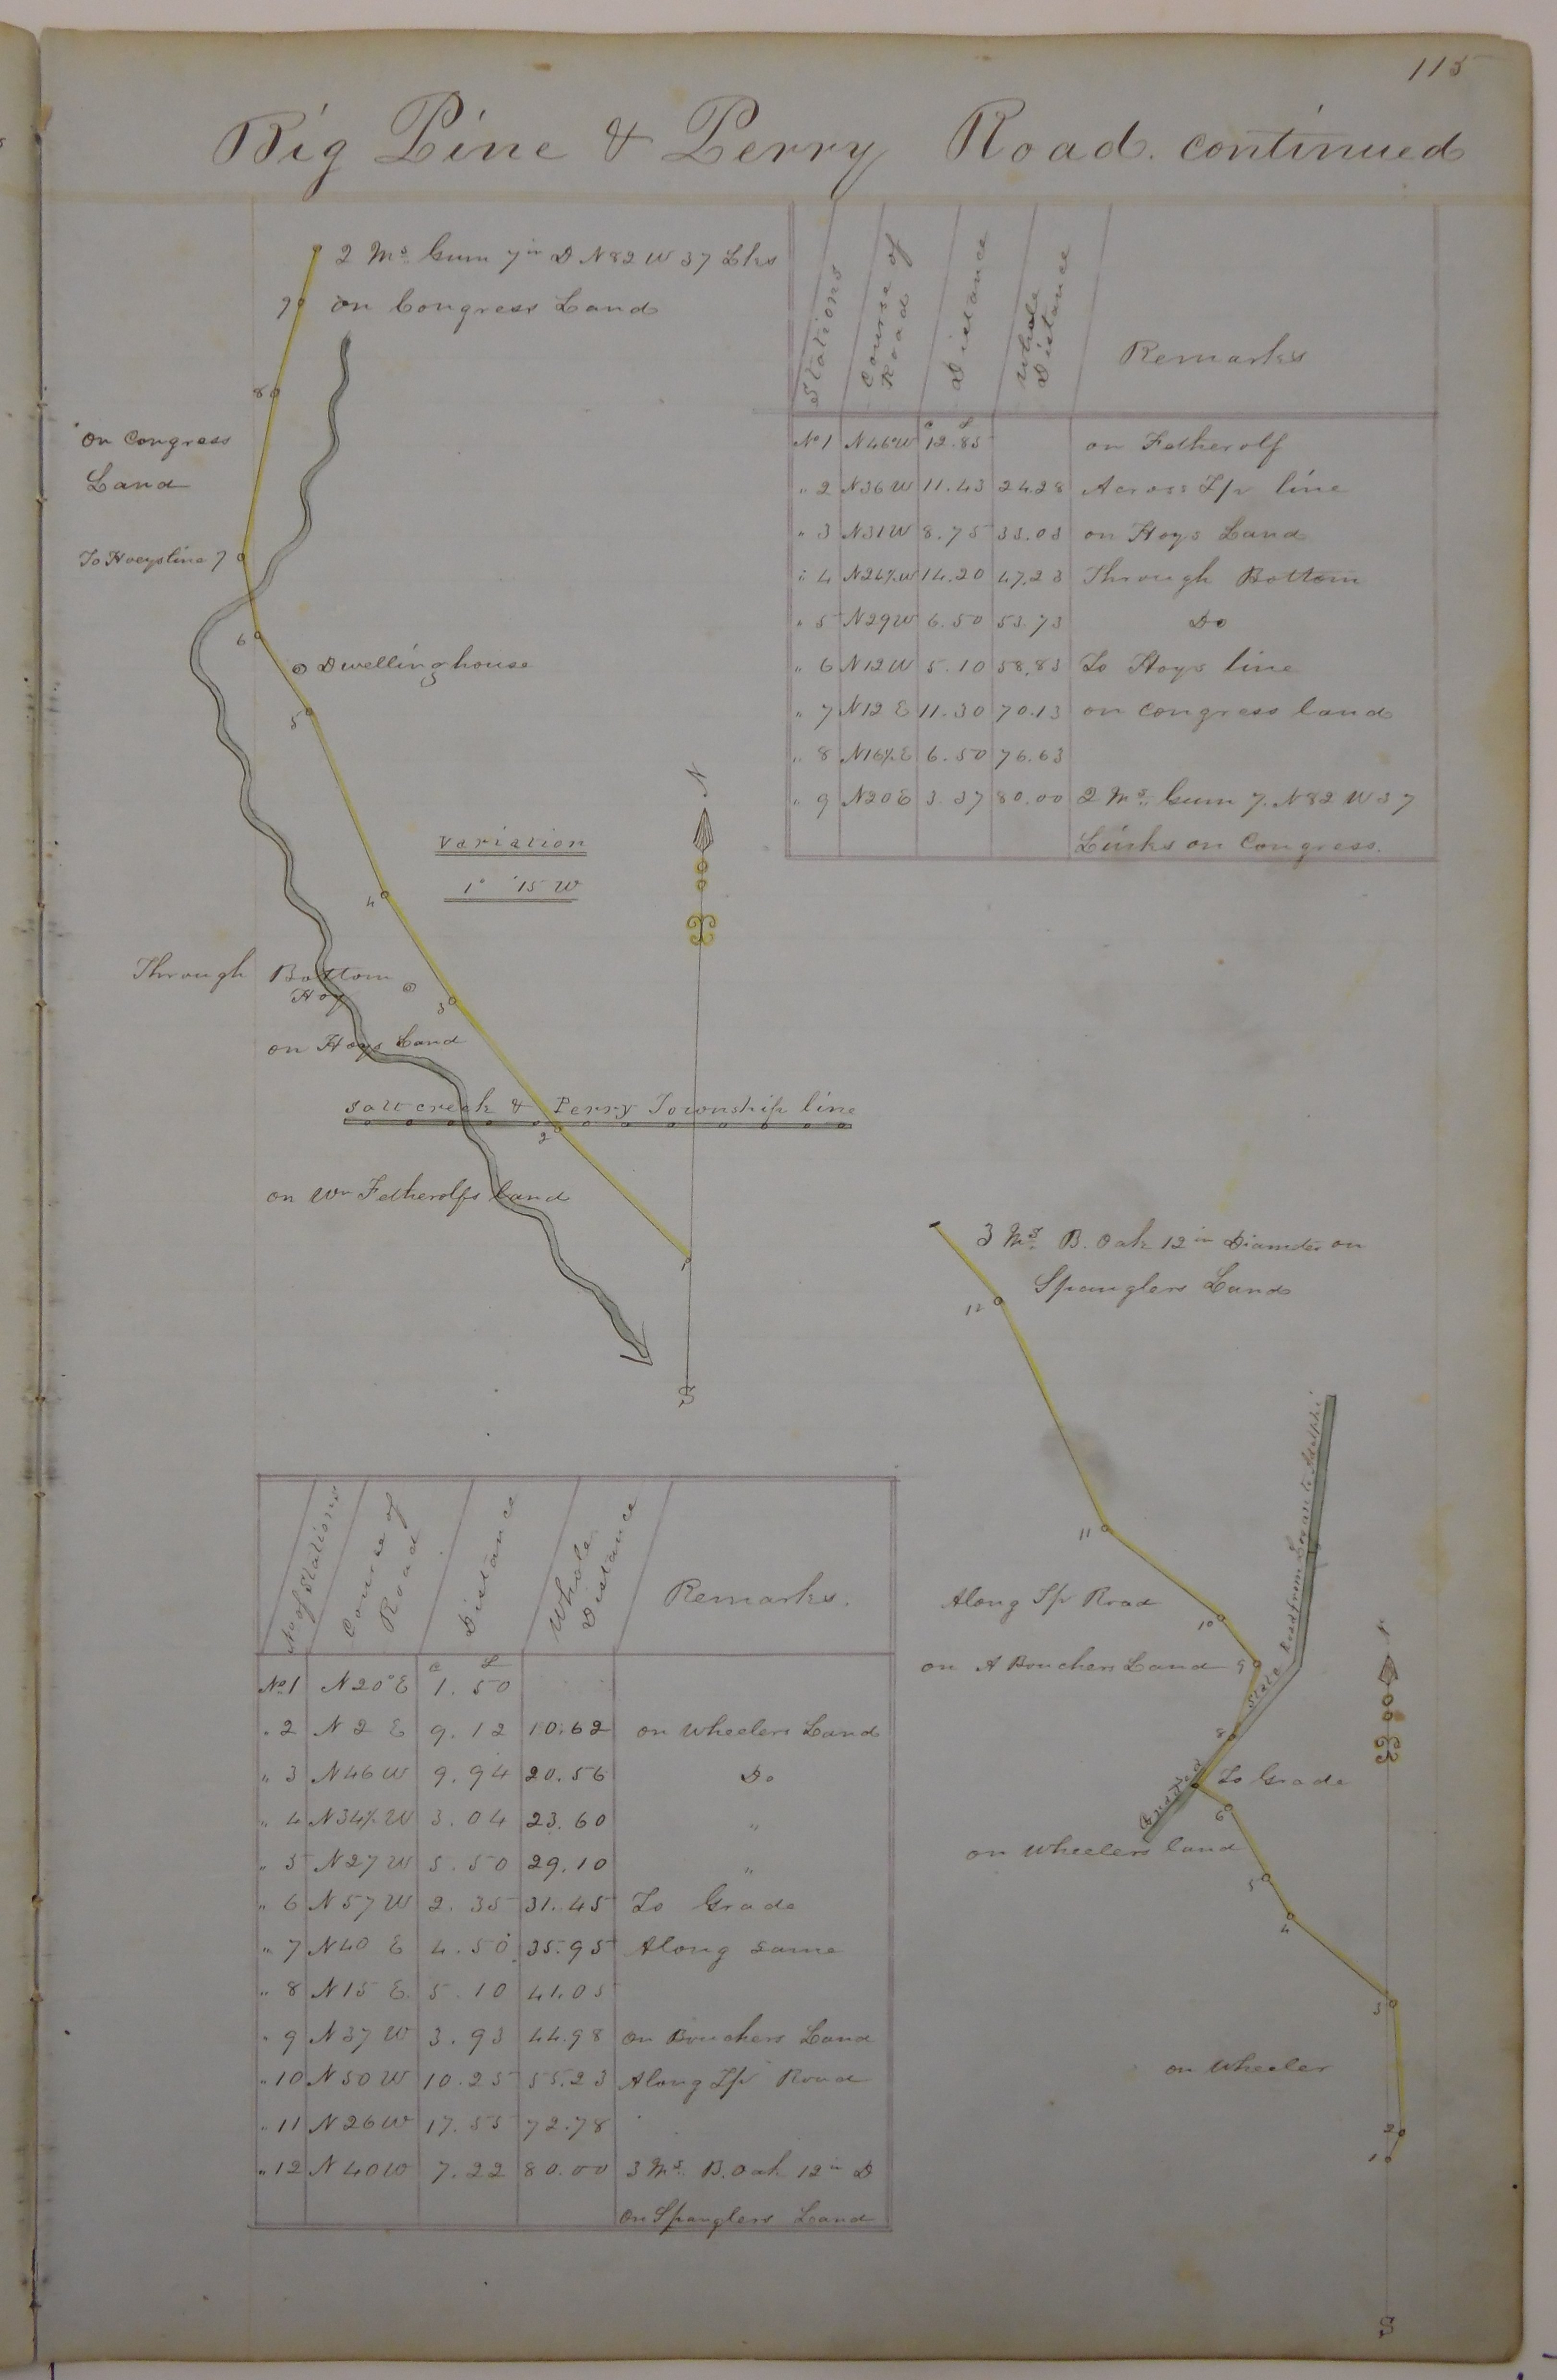 115
Big Pine & Perry Road. continued
2 Ms. Gum 7 in D N 82 W 37 Lks
9 on Congress Land
8
on Congress
Land
To Hoeys line 7
6
Dwelling house
5
Variation
1° 15 W
4
Through Bottom
Hoy
3
on Hoys Land
Salt creek & Perry Township line
2
on Wm Fetherolfs land
1
N
S
Stations
Course of Road
Distance
Whole Distance
Remarks
C L
No 1 N46°W 12.85 on Fetherolf
" 2 N36W 11.43 24.28 Across T/p line
" 3 N31W 8.75 33.03 on Hoys Land
" 4 N24½W 14.20 47.23 Through Bottom
" 5 N29W 6.50 53.73 Do
" 6 N12W 5.10 58.83 To Hoys line
" 7 N12 E 11.30 70.13 on congress land
" 8 N16½E 6.50 76.63
" 9 N20E 3.37 80.00 2 Ms. Gum 7. N82 W 37
Links on Congress.
3 Ms. B. Oak 12 in Diameter on
Spanglers Land
12
11
Along T/p Road
10
on A Bouchers Land 9
State Road from Logan to Adelphi
8
To Grade
Graded
6
on Wheelers land
5
4
3
on Wheeler
2
1
N
S
No of Stations
Course of Road
Distance
Whole Distance
Remarks.
C L
No 1 N20°E 1.50
" 2 N 2 E 9.12 10.62 on Wheelers Land
" 3 N46 W 9.94 20.56 Do
" 4 N34½W 3.04 23.60 "
" 5 N27 W 5.50 29.10 "
" 6 N57 W 2.35 31.45 To Grade
" 7 N40 E 4.50 35.95 Along same
" 8 N15 E. 5.10 41.05
" 9 N37 W 3.93 44.98 on Bouchers Land
" 10 N50W 10.25 55.23 Along T/p Road
" 11 N26W 17.55 72.78
" 12 N40W 7.22 80.00 3 Ms. B. Oak 12 in D
on Spanglers Land